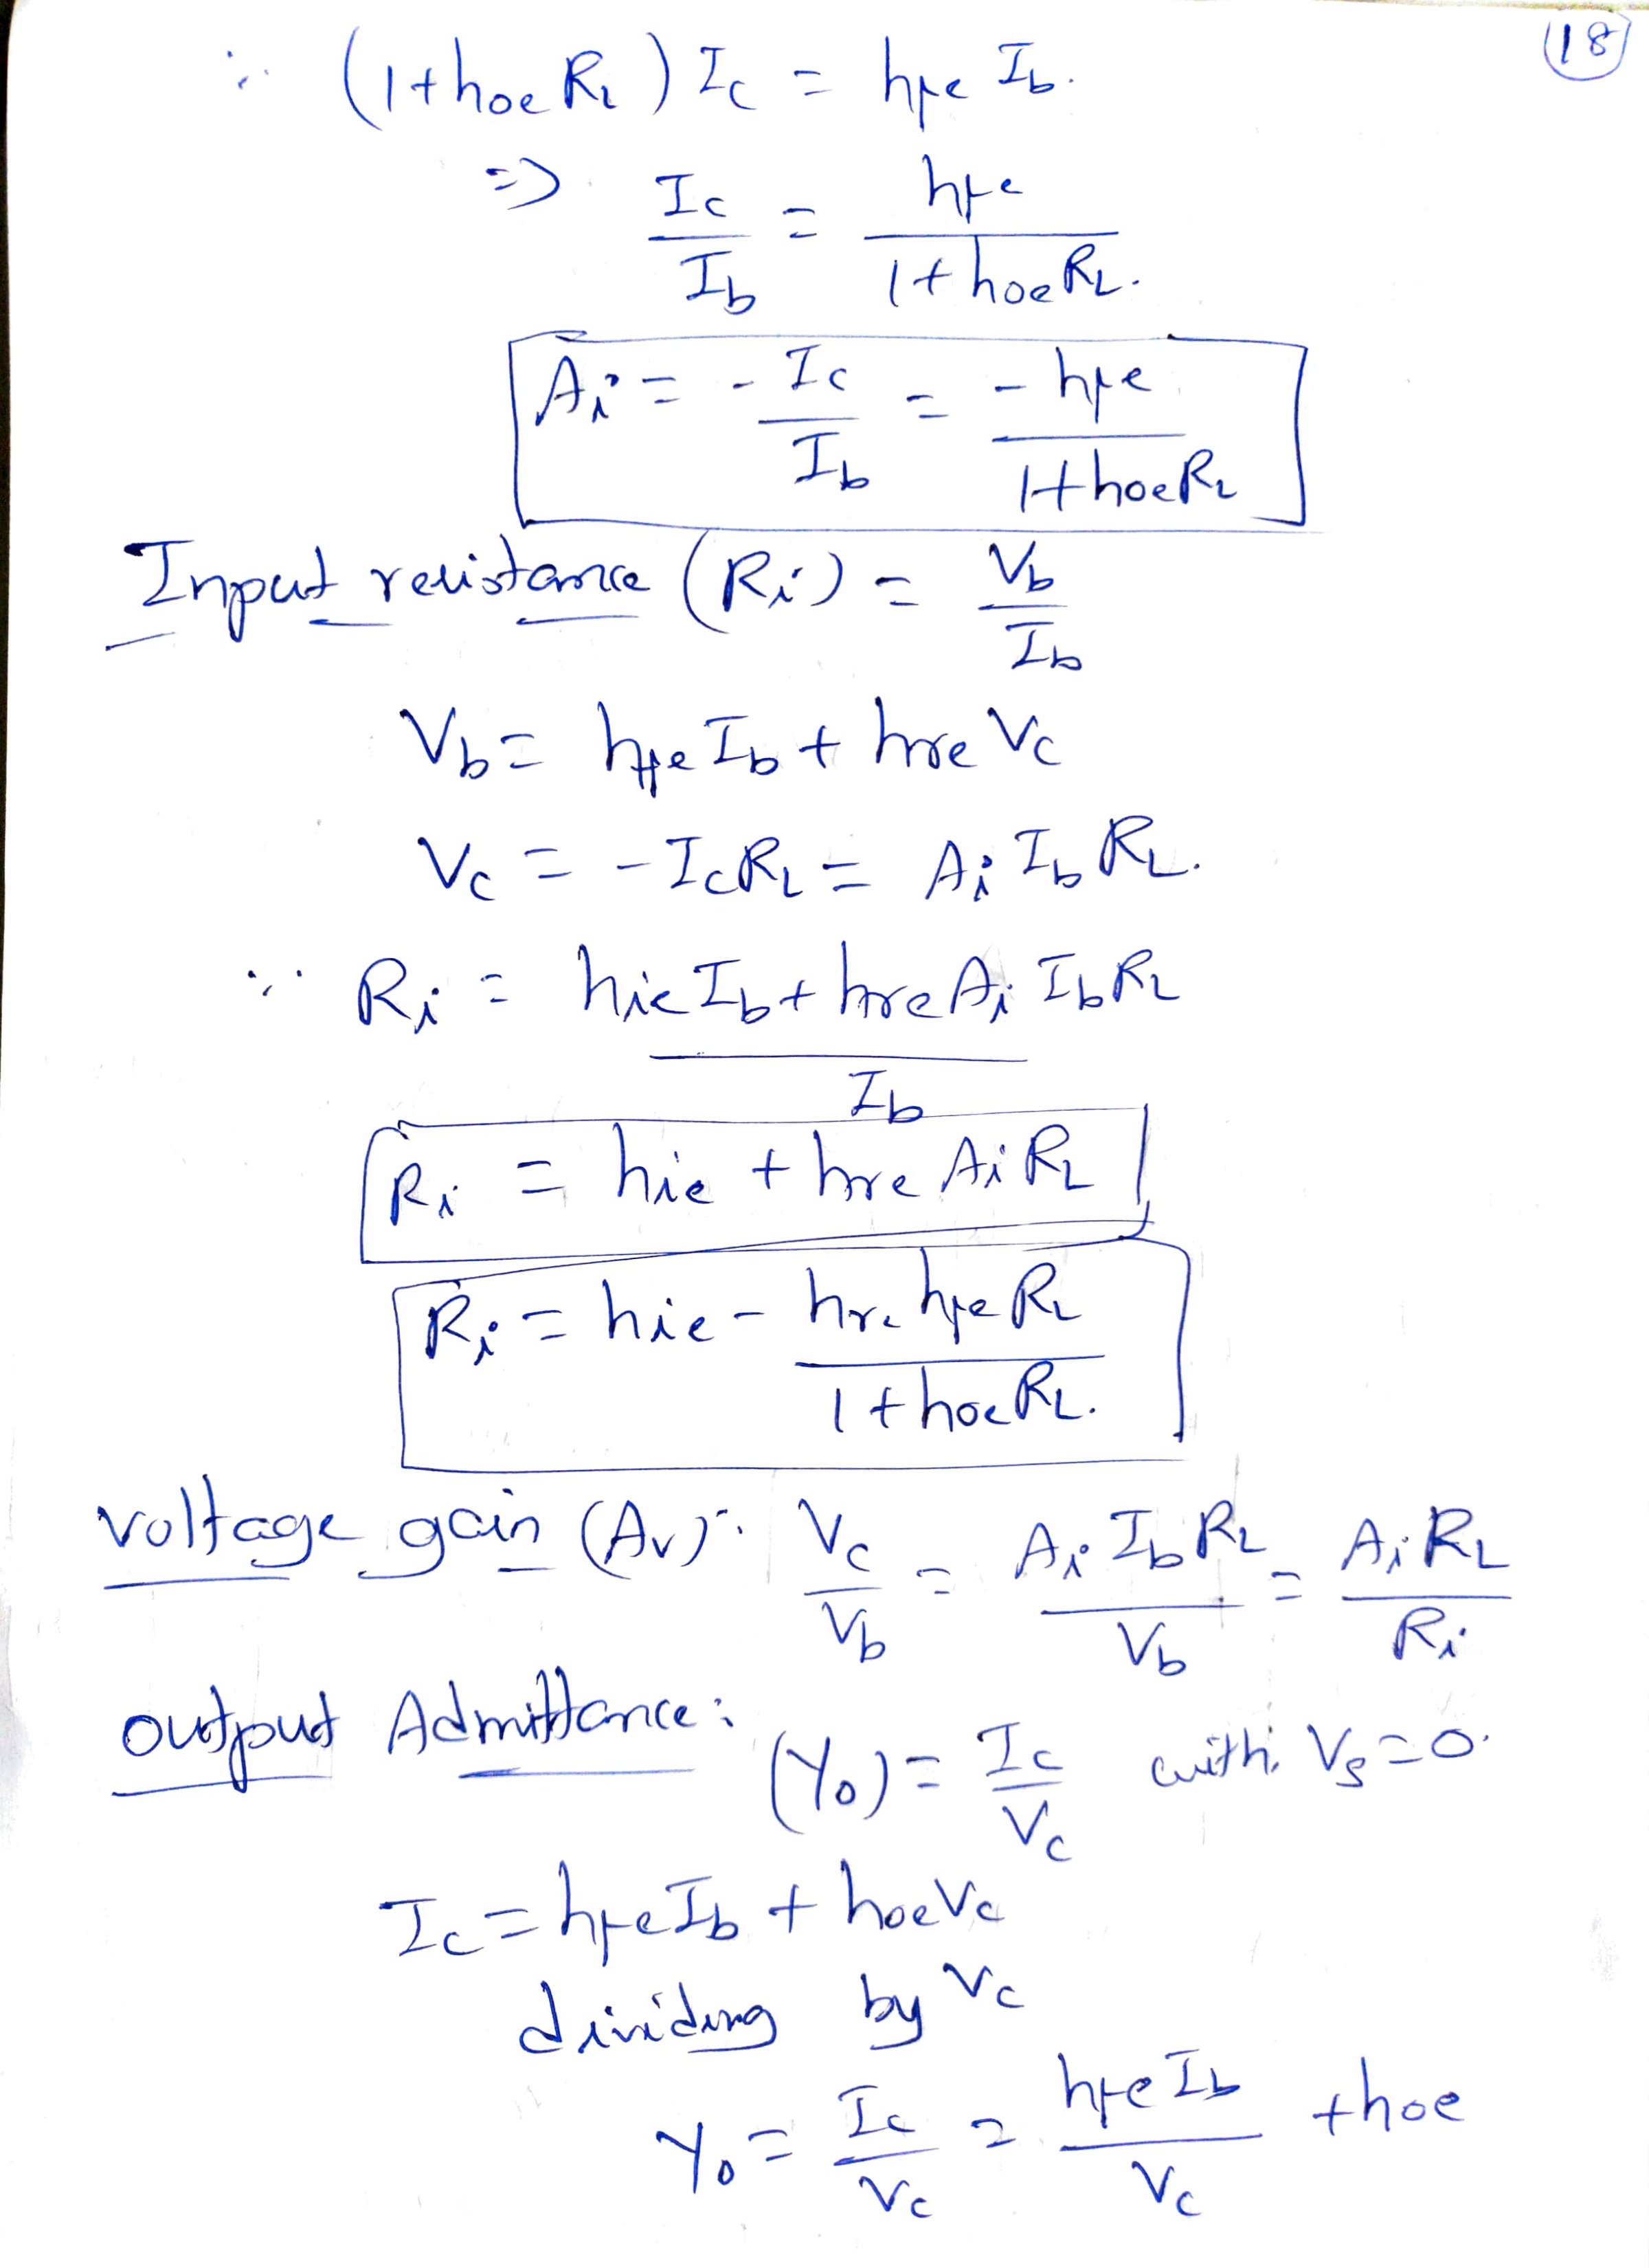 18
∵ (1+hoe RL) Ic = hfe Ib.
=> Ic/Ib = hfe/(1+hoe RL).
Ai = -Ic/Ib = -hfe/(1+hoe RL)
Input resistance (Ri) = Vb/Ib
Vb = hfe Ib + hre Vc
Vc = -Ic RL = Ai Ib RL.
∵ Ri = (hie Ib + hre Ai Ib RL)/Ib
Ri = hie + hre Ai RL
Ri = hie - (hre hfe RL)/(1+hoe RL.)
Voltage gain (Av): Vc/Vb = (Ai Ib RL)/Vb = (Ai RL)/Ri
Output Admittance: (Yo) = Ic/Vc with Vs=0.
Ic = hfe Ib + hoe Vc
dividing by Vc
Yo = Ic/Vc = (hfe Ib)/Vc + hoe